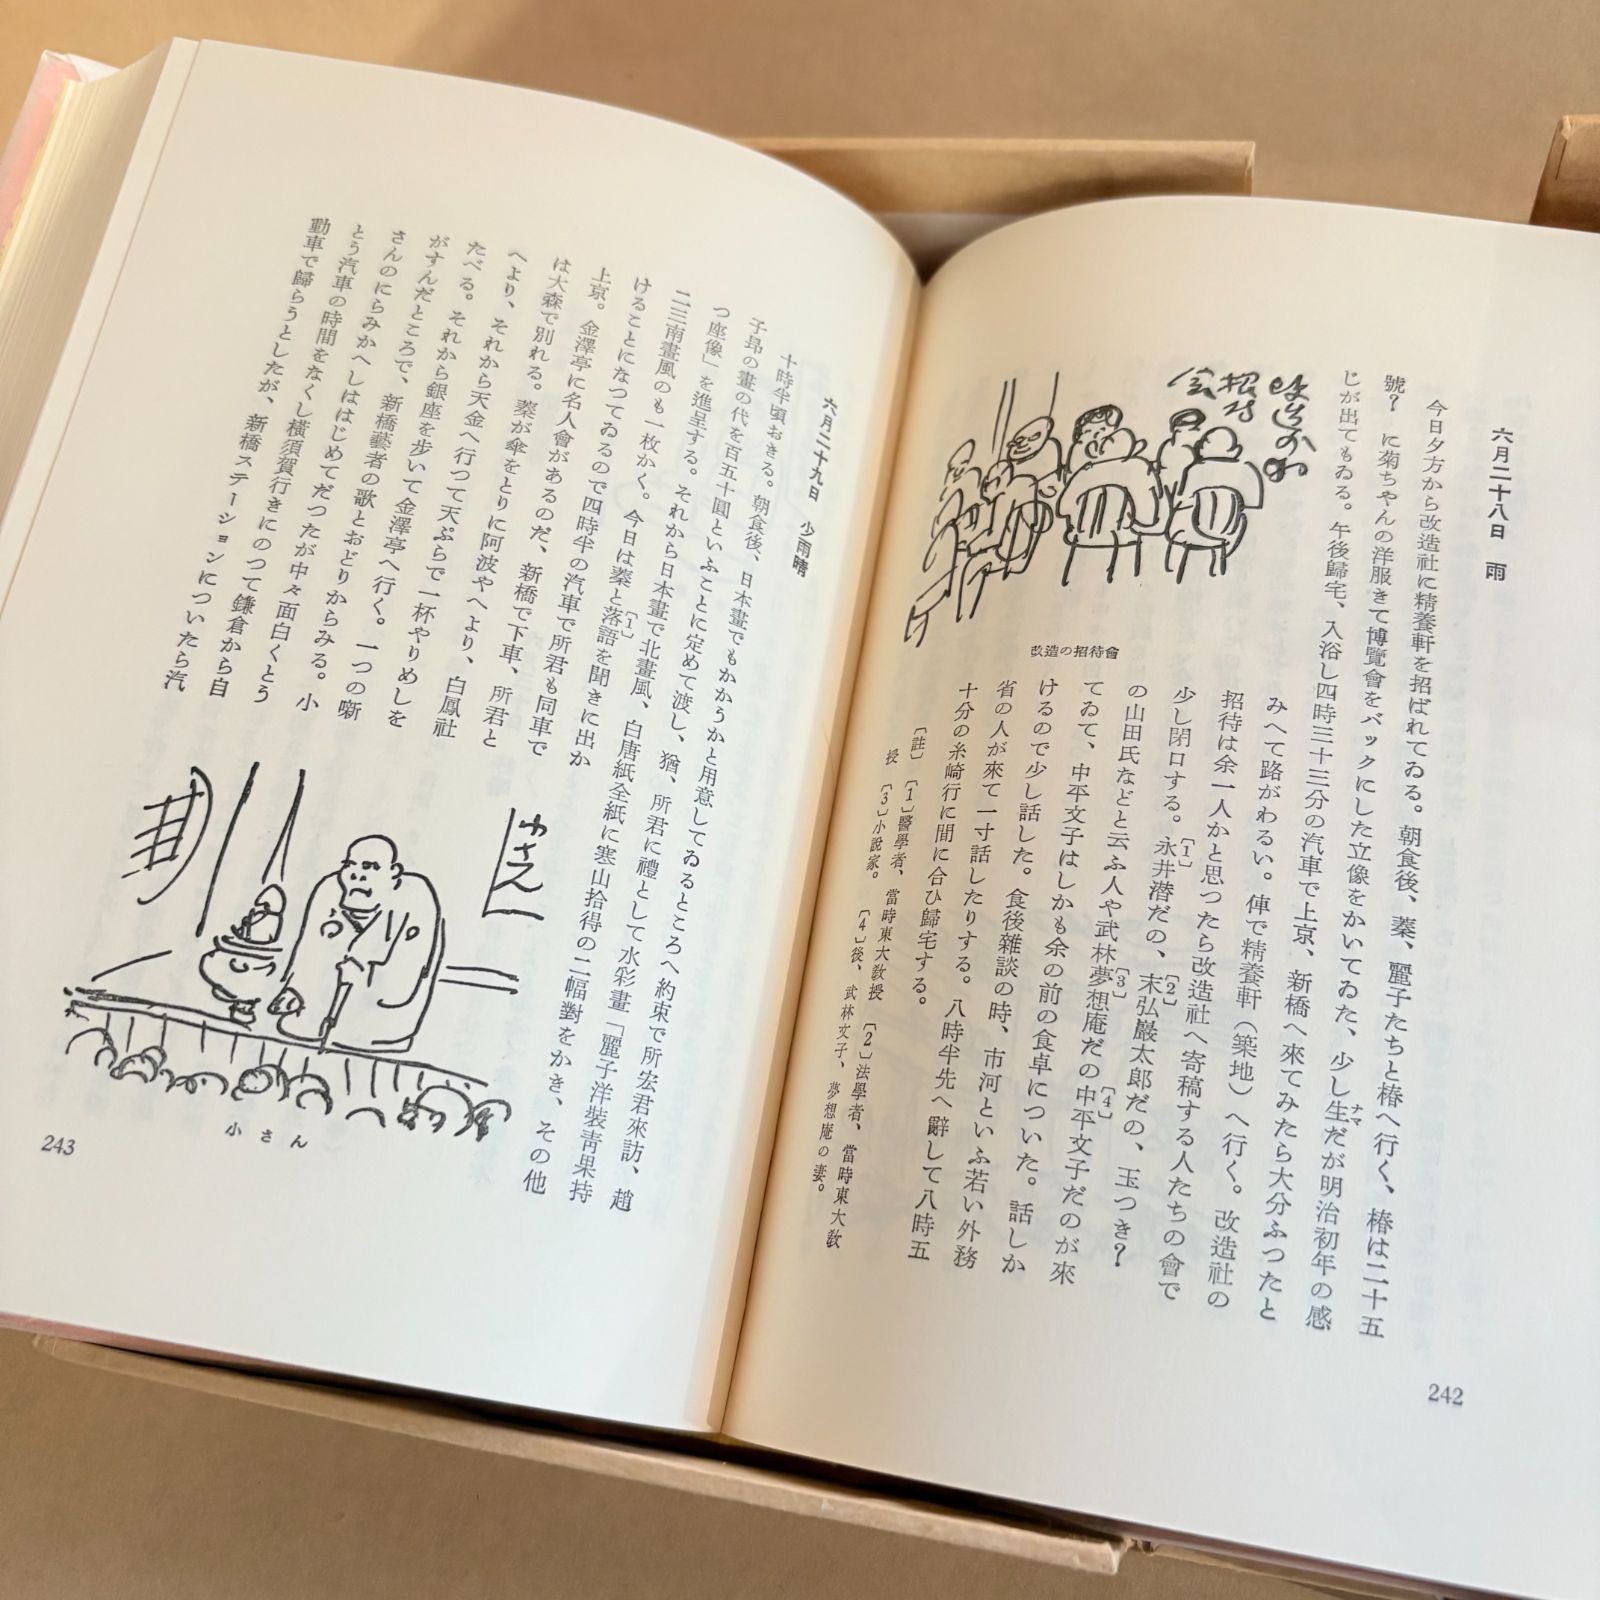 六月二十八日　雨
今日夕方から改造社に精養軒を招ばれてゐる。朝食後、蓁、麗子たちと椿へ行く、椿は二十五
號？　に菊ちやんの洋服きて博覽會をバックにした立像をかいてゐた、少し生だが明治初年の感
ナマ
じが出てもゐる。午後歸宅、入浴し四時三十三分の汽車で上京、新橋へ來てみたら大分ふつたと
みへて路がわるい。俥で精養軒（築地）へ行く。改造社の
招待は余一人かと思つたら改造社へ寄稿する人たちの會で
少し閉口する。永井潜だの、末弘巖太郎だの、玉つき？
〔1〕
〔2〕
の山田氏などと云ふ人や武林夢想庵だの中平文子だのが來
〔3〕
〔4〕
てゐて、中平文子はしかも余の前の食卓についた。話しか
けるので少し話した。食後雜談の時、市河といふ若い外務
省の人が來て一寸話したりする。八時半先へ辭して八時五
十分の糸崎行に間に合ひ歸宅する。
〔註〕〔1〕醫學者、當時東大教授　〔2〕法學者、當時東大教
授　〔3〕小說家。　〔4〕後、武林文子、夢想庵の妻。
招待
改造の招待會
242
六月二十九日　少雨晴
十時半頃おきる。朝食後、日本畫でもかかうかと用意してゐるところへ約束で所宏君來訪、趙
子昻の畫の代を百五十圓といふことに定めて渡し、猶、所君に禮として水彩畫「麗子洋裝靑果持
つ座像」を進呈する。それから日本畫で北畫風、白唐紙全紙に寒山拾得の二幅對をかき、その他
二三南畫風のも一枚かく。今日は蓁と落語を聞きに出か
〔1〕
けることになつてゐるので四時半の汽車で所君も同車で
上京。金澤亭に名人會があるのだ、新橋で下車、所君と
は大森で別れる。蓁が傘をとりに阿波やへより、白鳳社
へより、それから天金へ行つて天ぷらで一杯やりめしを
たべる。それから銀座を歩いて金澤亭へ行く。一つの噺
がすんだところで、新橋藝者の歌とおどりからみる。小
さんのにらみかへしははじめてだつたが中々面白くとう
とう汽車の時間をなくし橫須賀行きにのつて鎌倉から自
動車で歸らうとしたが、新橋ステーションについたら汽
小さん
243